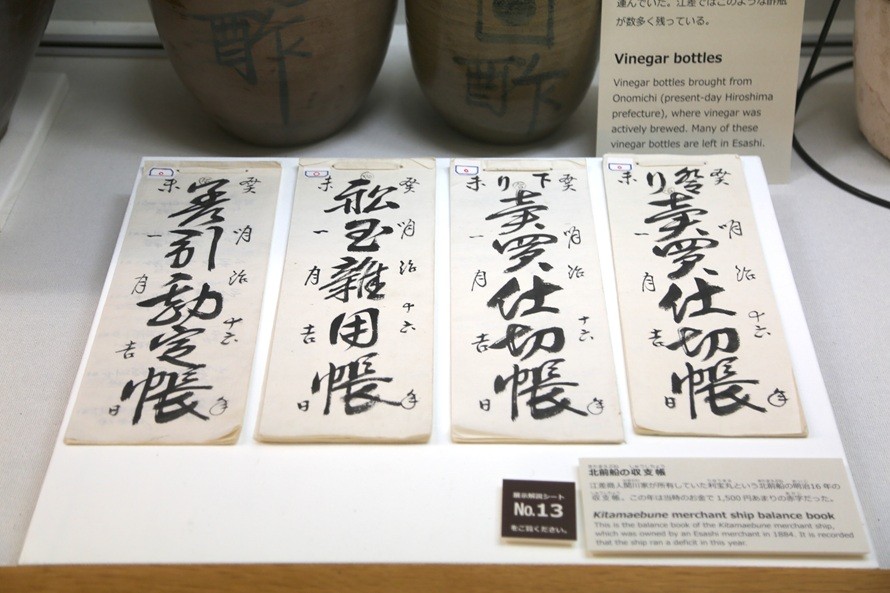 酢
酢
運んでいた。江差ではこのような酢瓶
が数多く残っている。
Vinegar bottles
Vinegar bottles brought from
Onomichi (present-day Hiroshima
prefecture), where vinegar was
actively brewed. Many of these
vinegar bottles are left in Esashi.
癸 明治十六年
登り売買仕切帳
未 一月吉日
癸 明治十六年
下り売買仕切帳
未 一月吉日
癸 明治十六年
船玉雑用帳
未 一月吉日
癸 明治十六年
差引勘定帳
未 一月吉日
展示解説シート
No.13
をご覧ください。
北前船の収支帳
江差商人関川家が所有していた利宝丸という北前船の明治16年の
収支帳。この年は当時のお金で1,500円あまりの赤字だった。
Kitamaebune merchant ship balance book
This is the balance book of the Kitamaebune merchant ship,
which was owned by an Esashi merchant in 1884. It is recorded
that the ship ran a deficit in this year.